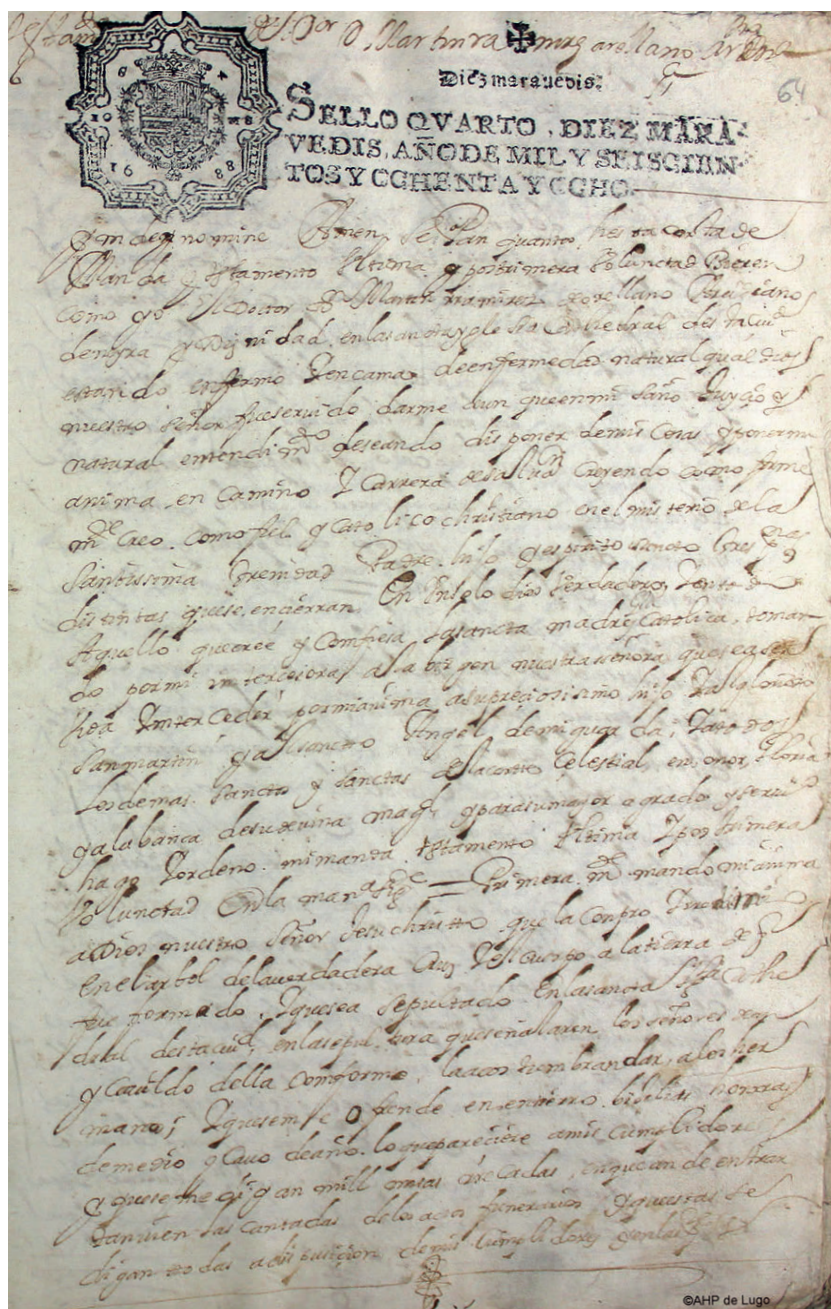 testamto del Sor Dor D. Martin Ramirez arellano
64
Diez marauedis.
SELLO QVARTO, DIEZ MARA-
VEDIS, AÑO DE MIL Y SEISCIEN-
TOS Y OCHENTA Y OCHO.
1688
yn dey nomine Amen Sepan quantos esta carta de
Manda y testamento Ultima y postrimera Boluntad Bieren
como yo El Doctor Dn Martin rramirez de arellano Arcediano
y Dignidad en la sancta yglesia Cathedral desta ciud
estando enfermo Y en cama de enfermedad natural qual dios
nuestro Señor fue seruido darme aun que en mi sano Juyçio y
natural entendimto deseando disponer de mis Cosas y poner mi
anima en Camino Y Carrera de saluon Creyendo como firme
mte Creo como fiel y Catolico christiano en el misterio de la
santissima trenidad Padre hijo y espirito sancto tres
distintas que se ençierran En un solo dios berdadero y en todo
Aquello que cree y Comfiesa la sancta madre Catolica, toman
do por mi intercesora a la birgen nuestra señora que sea
Ynterceder por mi anima a su preciosisimo hijo Y al glorioso
san martin y al sancto Angel de mi guarda, Y a todos
los demas sanctos y sanctas de la corte Celestial, en onor, gloria
y alabança de su diuina magd y para su mayor agrado y serui
hago Y ordeno mi manda testamento Ultima Y postrimera
boluntad En la mana sige = Primera mte mando mi anima
a Dios nuestro Señor Jesuchristo que la conpro Y redimio
en el arbol de la uerdadera Cruz Y el cuerpo a la tierra de q
fue formado Y que sea sepultado En la sancta ygla Cathe
dral desta ciud, en la sepultura que señalaren los señores
y Cauildo della comforme la acostumbran dar a los her
manos, Y que se me ofrende en entierro bixilias honrras
de medio y Cauo de año lo que pareciere a mis Cumplidores
y que se me digan mill misas Reçadas, en que an de entrar
tanuien las cantadas de los actos funerarios y que estas se
digan todas a disposicion de mis Cumplidores
©AHP de Lugo